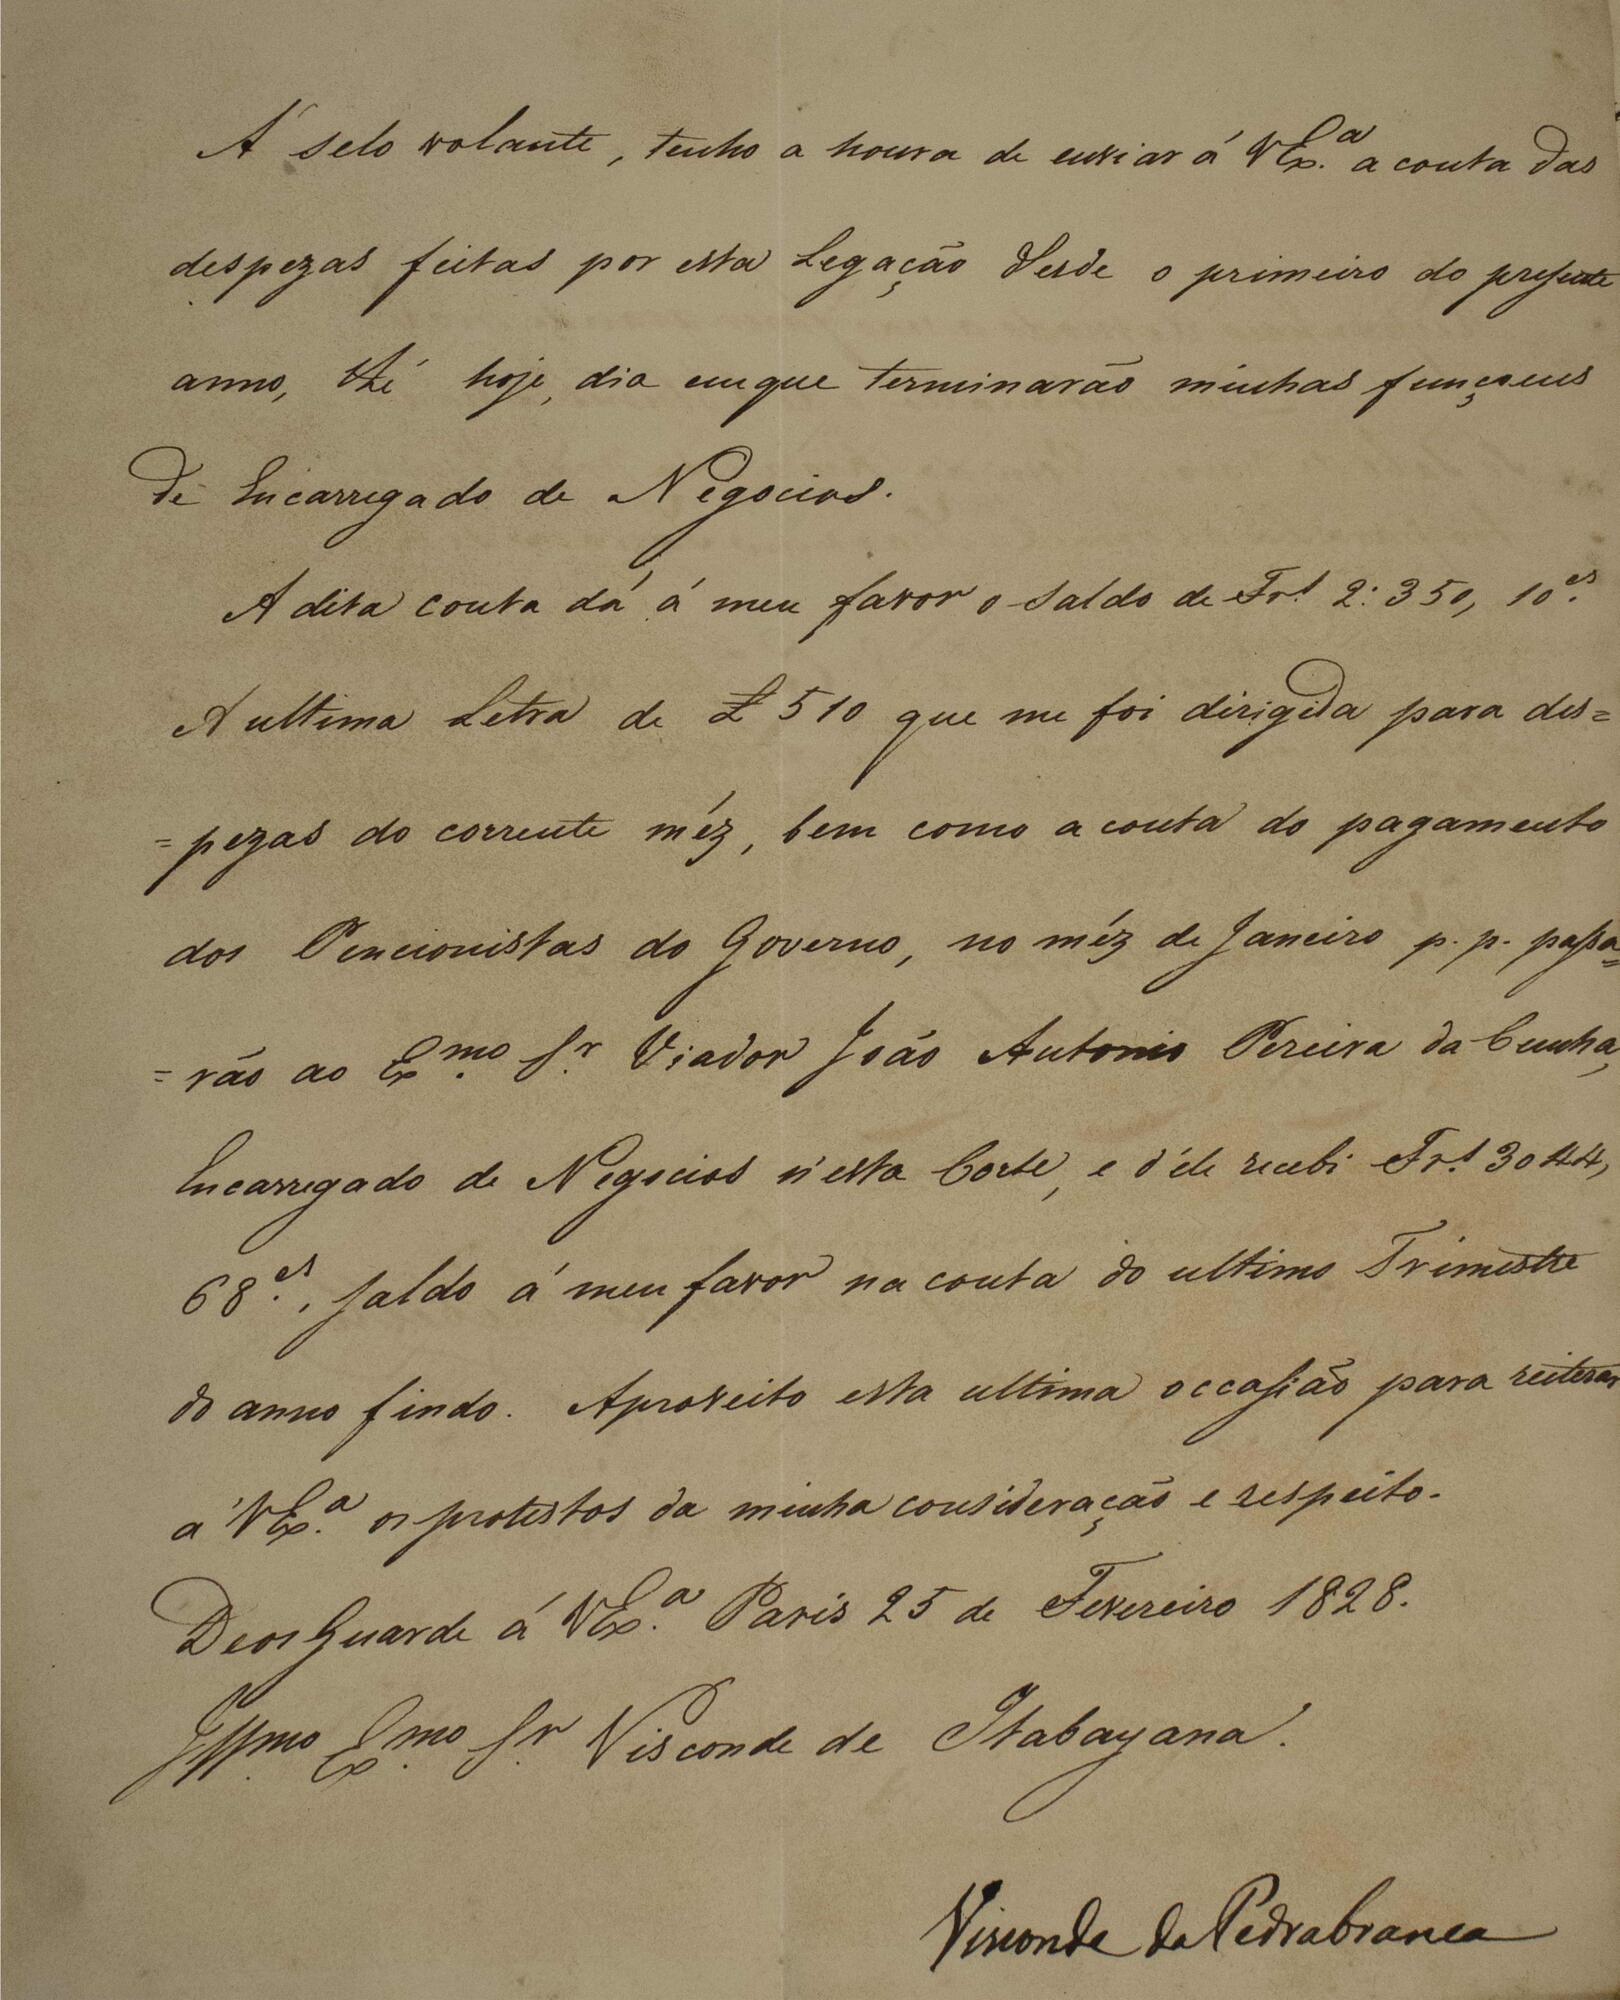 A' selo volante, tenho a honra de enviar á VEx.ª a conta das
despezas feitas por esta Legação desde o primeiro do presente
anno, thé hoje, dia em que terminarão minhas funçoens
de Encarregado de Negocios.
A dita conta dá á meu favor o saldo de Frs. 2:350, 10es.
A ultima Letra de £ 510 que me foi dirigida para des=
=pezas do corrente méz, bem como a conta do pagamento
dos Pencionistas do Governo, no méz de Janeiro p. p. passa=
=rão ao Exmo. Sr. Viador João Antonio Pereira da Cunha,
Encarregado de Negocios n'esta Corte, e d'éle recebi Frs. 3044,
68es., saldo á meu favor na conta do ultimo Trimestre
do anno findo. Aproveito esta ultima occasião para reiterar
a' VEx.ª os protestos da minha consideração e respeito.
Deos Guarde á VEx.ª Paris 25 de Fevereiro 1828.
Illmo. Exmo. Sr. Visconde de Itabayana.
Visconde da Pedrabranca